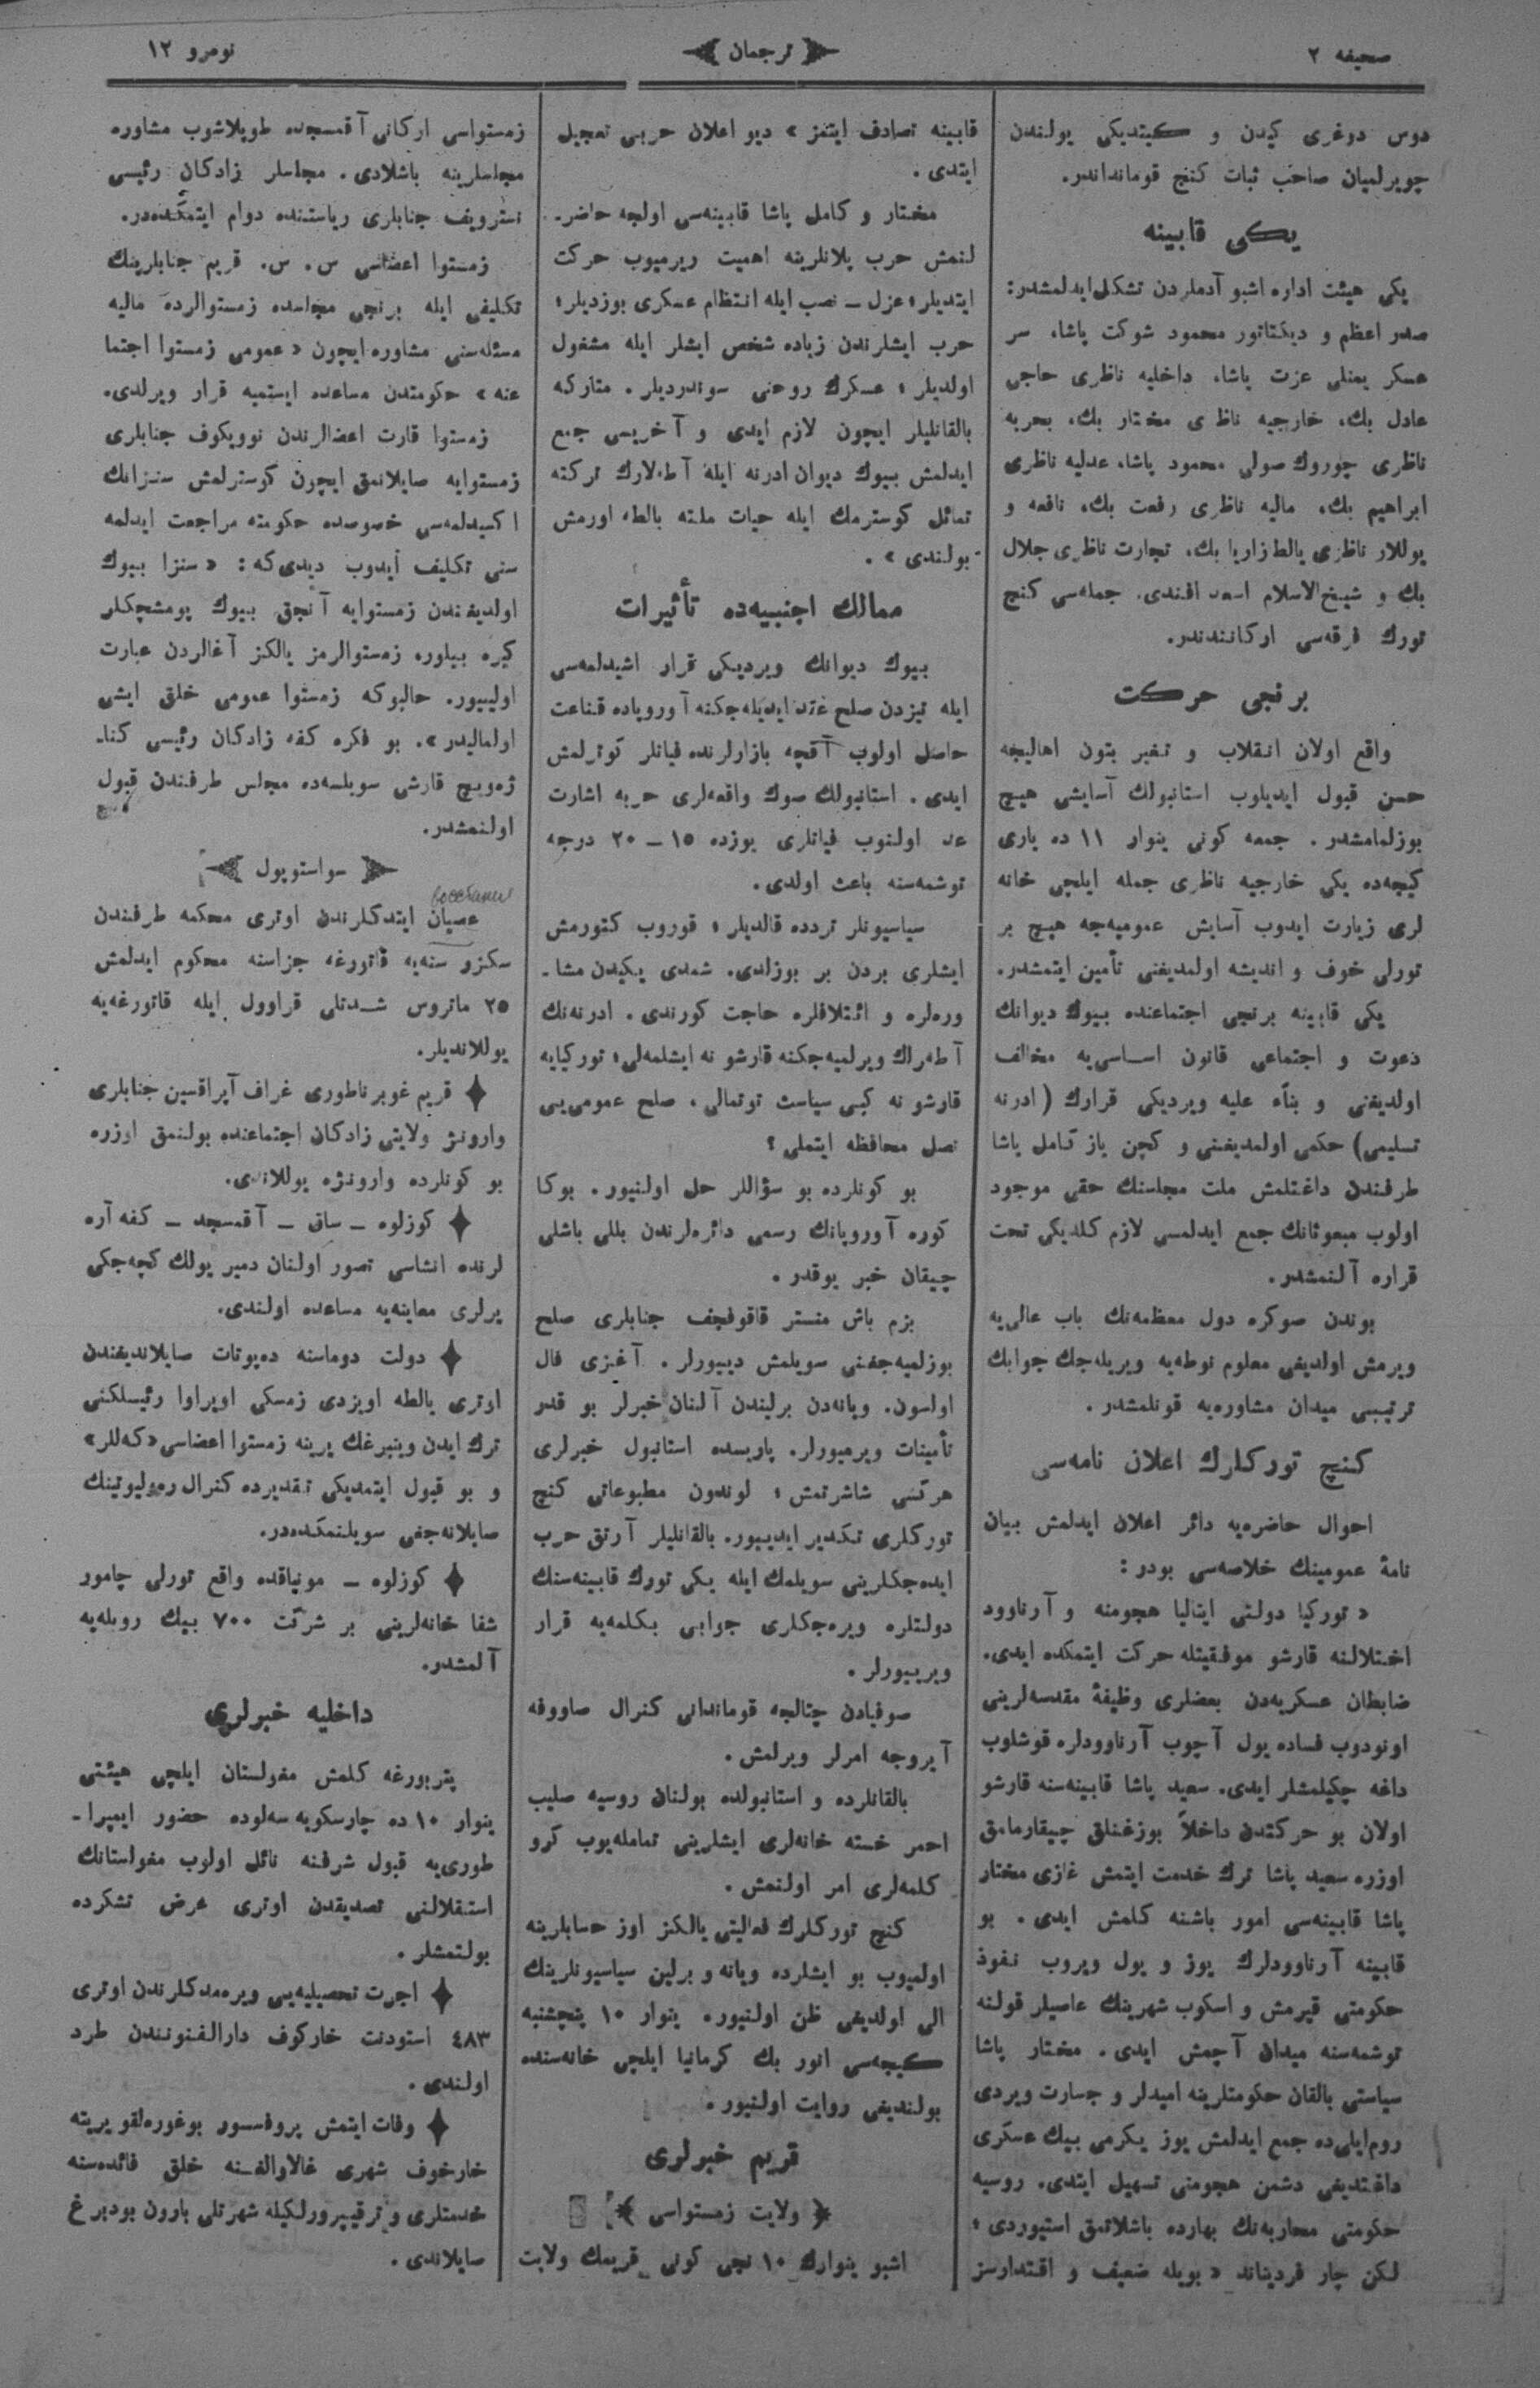 صحیفه ۲
ترجمان
نومرو ۱۲
دوس دوغری كیدن و كیتدیكی یولندن
چویرلمیان صاحب ثبات كنج قومانداندر.
یكی قابینه
یكی هیئت اداره اشبو آدملردن تشكل ایدلمشدر:
صدر اعظم و دیكتاتور محمود شوكت پاشا، سر
عسكر یمنلی عزت پاشا، داخلیه ناظری حاجی
عادل بك، خارجیه ناظری مختار بك، بحریه
ناظری چوروك صولی محمود پاشا، عدلیه ناظری
ابراهیم بك، مالیه ناظری رفعت بك، نافعه و
یوللار ناظری یالط زاریا بك، تجارت ناظری جلال
بك و شیخ‌الاسلام اسعد افندی. جمله‌سی كنج
تورك فرقه‌سی اركانندندر.
برنجی حركت
واقع اولان انقلاب و تغیر بتون اهالیجه
حسن قبول ایدیلوب استانبولك آسایشی هیچ
بوزلمامشدر. جمعه كونی ینوار ۱۱ ده یاری
كیجه‌ده یكی خارجیه ناظری جمله ایلچی خانه
لری زیارت ایدوب آسایش عمومیه‌جه هیچ بر
تورلی خوف و اندیشه اولمدیغنی تأمین ایتمشدر.
یكی قابینه برنجی اجتماعنده بیوك دیوانك
دعوت و اجتماعی قانون اساسی‌یه مخالف
اولدیغنی و بناءً علیه ویردیكی قرارك (ادرنه
تسلیمی) حكمی اولمدیغنی و كچن یاز كامل پاشا
طرفندن داغتلمش ملت مجلسنك حقی موجود
اولوب مبعوثانك جمع ایدلمسی لازم كلدیكی تحت
قراره آلنمشدر.
بوندن صوكره دول معظمه‌نك باب عالی‌یه
ویرمش اولدیغی معلوم نوطه‌یه ویریله‌جك جوابك
ترتیبی میدان مشاوره‌یه قونلمشدر.
كنج توركلرك اعلان نامه‌سی
احوال حاضره‌یه دائر اعلان ایدلمش بیان
نامهٔ عمومینك خلاصه‌سی بودر:
«توركیا دولتی ایتالیا هجومنه و آرناوود
اختلالنه قارشو موفقیتله حركت ایتمكده ایدی.
ضابطان عسكریه‌دن بعضلری وظیفهٔ مقدسه‌لرینی
اونودوب فساده یول آچوب آرناوودلره قوشلوب
داغه چكیلمشلر ایدی. سعید پاشا قابینه‌سنه قارشو
اولان بو حركتدن داخلاً بوزغنلق چیقارمامق
اوزره سعید پاشا ترك خدمت ایتمش غازی مختار
پاشا قابینه‌سی امور باشنه كلمش ایدی. بو
قابینه آرناوودلرك یوز و یول ویروب نفوذ
حكومتی قیرمش و اسكوب شهرینك عاصیلر قولنه
توشمه‌سنه میدان آچمش ایدی. مختار پاشا
سیاستی بالقان حكومتلرینه امیدلر و جسارت ویردی
روم‌ایلی‌ده جمع ایدلمش یوز یكرمی بیك عسكری
داغتدیغی دشمن هجومنی تسهیل ایتدی. روسیه
حكومتی محاربه‌نك بهارده باشلاتمق استیوردی؛
لكن چار فردیناند «بویله ضعیف و اقتدارسز
قابینه تصادف ایتمز» دیو اعلان حربی تعجیل
ایتدی.
مختار و كامل پاشا قابینه‌سی اولجه حاضر-
لنمش حرب پلانلرینه اهمیت ویرمیوب حركت
ایتدیلر؛ عزل ـ نصب ایله انتظام عسكری بوزدیلر؛
حرب ایشلرندن زیاده شخص ایشلر ایله مشغول
اولدیلر؛ عسكرك روحنی سوندردیلر. متاركه
بالقانلیلر ایچون لازم ایدی و آخریسی جمع
ایدلمش بیوك دیوان ادرنه ایله آطه‌لارك تركنه
تمائل كوسترمك ایله حیات ملته بالطه اورمش
بولندی».
ممالك اجنبیه‌ده تأثیرات
بیوك دیوانك ویردیكی قرار اشیدلمه‌سی
ایله تیزدن صلح عقد ایدیله‌جكنه آوروپاده قناعت
حاصل اولوب آقچه بازارلرنده فیاتلر كوترلمش
ایدی. استانبولك صوك واقعه‌لری حربه اشارت
عد اولنوب فیاتلری یوزده ۱۵ ـ ۲۰ درجه
توشمه‌سنه باعث اولدی.
سیاسیونلر تردده قالدیلر؛ قوروب كتورمش
ایشلری بردن بر بوزلدی. شمدی یكیدن مشا-
وره‌لره و ائتلافلره حاجت كورندی. ادرنه‌نك
آطه‌لرك ویرلمیه‌جكنه قارشو نه ایشلمه‌لی؛ توركیایه
قارشو نه كبی سیاست توتمالی، صلح عمومی‌یی
نصل محافظه ایتملی؟
بو كونلرده بو سؤاللر حل اولنیور. بوكا
كوره آوروپانك رسمی دائره‌لرندن بللی باشلی
چیقان خبر یوقدر.
بزم باش منستر قاقوفچف جنابلری صلح
بوزلمیه‌جغنی سویلمش دییورلر. آغزی فال
اولسون. ویانه‌دن برلیندن آلنان خبرلر بو قدر
تأمینات ویرمیورلر. پاریسده استانبول خبرلری
هركسی شاشرتمش؛ لوندون مطبوعاتی كنج
توركلری تكدیر ایدییور. بالقانلیلر آرتق حرب
ایده‌جكلرینی سویلمك ایله یكی تورك قابینه‌سنك
دولتلره ویره‌جكلری جوابی بكلمه‌یه قرار
ویرییورلر.
صوفیادن چتالجه قوماندانی كنرال صاووفه
آیروجه امرلر ویرلمش.
بالقانلرده و استانبولده بولنان روسیه صلیب
احمر خسته خانه‌لری ایشلرینی تمامله‌یوب كرو
كلمه‌لری امر اولنمش.
كنج توركلرك فعالیتی یالكز اوز حسابلرینه
اولمیوب بو ایشلرده ویانه و برلین سیاسیونلرینك
الی اولدیغی ظن اولنیور. ینوار ۱۰ پنچشنبه
كیجه‌سی انور بك كرمانیا ایلچی خانه‌سنده
بولندیغی روایت اولنیور.
قریم خبرلری
ولایت زمستواسی
اشبو ینوارك ۱۰ نجی كونی قریمك ولایت
زمستواسی اركانی آقمسجده طوپلاشوب مشاوره
مجلسلرینه باشلادی. مجلسلر زادكان رئیسی
نسترویف جنابلری ریاستنده دوام ایتمكده‌در.
زمستوا اعضاسی س. س. قریم جنابلرینك
تكلیفی ایله برنجی مجلسده زمستوالرده مالیه
مسئله‌سنی مشاوره ایچون «عمومی زمستوا اجتما
عنه» حكومتدن مساعده ایستمیه قرار ویرلدی.
زمستوا قارت اعضالرندن نوویكوف جنابلری
زمستوایه صایلانمق ایچون كوسترلمش سنزانك
اكسیدلمه‌سی خصوصده حكومته مراجعت ایدلمه
سنی تكلیف ایدوب دیدی‌كه: «سنزا بیوك
اولدیغندن زمستوایه آنجق بیوك پومشچكلر
كیره بیلور، زمستوالرمز یالكز آغالردن عبارت
اولییور. حالبوكه زمستوا عمومی خلق ایشی
اولمالیدر». بو فكره كفه زادكان رئیسی كنا-
ژه‌ویچ قارشی سویلسه‌ده مجلس طرفندن قبول
اولنمشدر.
سواستوپول
عصیان ایتدكلرندن اوتری محكمه طرفندن
سكزر سنه‌یه قاتورغه جزاسنه محكوم ایدلمش
۲۵ ماتروس شدتلی قراوول ایله قاتورغه‌یه
یوللاندیلر.
قریم غوبرناطوری غراف آپراقسین جنابلری
وارونژ ولایتی زادكان اجتماعنده بولنمق اوزره
بو كونلرده وارونژه یوللاندی.
كوزلوه ـ ساق ـ آقمسجد ـ كفه آره
لرنده انشاسی تصور اولنان دمیر یولك كچه‌جكی
یرلری معاینه‌یه مساعده اولندی.
دولت دوماسنه ده‌پوتات صایلاندیغندن
اوتری یالطه اویزدی زمسكی اوپراوا رئیسلكنی
ترك ایدن وینبرغك یرینه زمستوا اعضاسی «كه‌للر»
و بو قبول ایتمدیكی تقدیرده كنرال ره‌ولیوتینك
صایلانه‌جغی سویلنمكده‌در.
كوزلوه ـ مویناقده واقع تورلی چامور
شفا خانه‌لرینی بر شركت ۷۰۰ بیك روبله‌یه
آلمشدر.
داخلیه خبرلری
پتربورغه كلمش مغولستان ایلچی هیئتی
ینوار ۱۰ ده چارسكویه سه‌لوده حضور ایمپرا-
طوری‌یه قبول شرفنه نائل اولوب مغولستانك
استقلالنی تصدیقدن اوتری عرض تشكرده
بولنمشلر.
اجرت تحصیلیه‌یی ویره‌مدكلرندن اوتری
٤٨٣ استودنت خاركوف دارالفنونندن طرد
اولندی.
وفات ایتمش پروفسسور بوغوره‌لقو یرینه
خارخوف شهری غالاوالغنه خلق فائده‌سنه
خدمتلری و ترقیپرورلكیله شهرتلی بارون بودبرغ
صایلاندی.